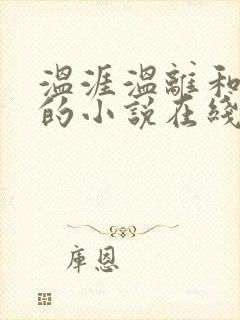 温涯温離和
的小说在綫
库恩